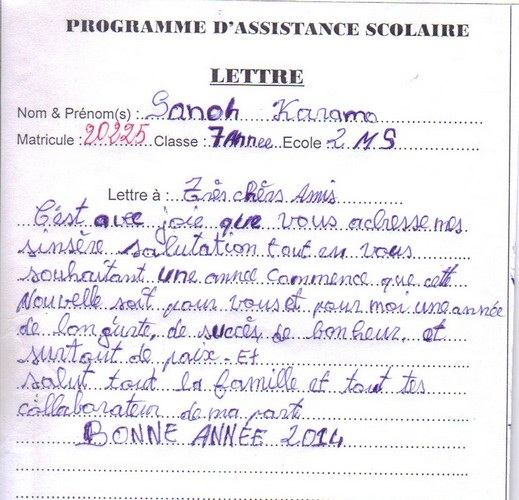 PROGRAMME D'ASSISTANCE SCOLAIRE
LETTRE
Nom & Prénom(s) : Sanoh Karamo
Matricule : 20225 Classe : 7 Année Ecole : 2 MS
Lettre à : Très chèrs Amis
C'est avec joie que vous adresse mes
sinsère salutation tout en vous
souhaitant une année commence que cette
Nouvelle soit pour vous et pour moi une année
de longurte, de succès de bonheur, et
surtout de paix. Et
salut tout la famille et tout tes
collaborateur de ma parte
BONNE ANNÉE 2014